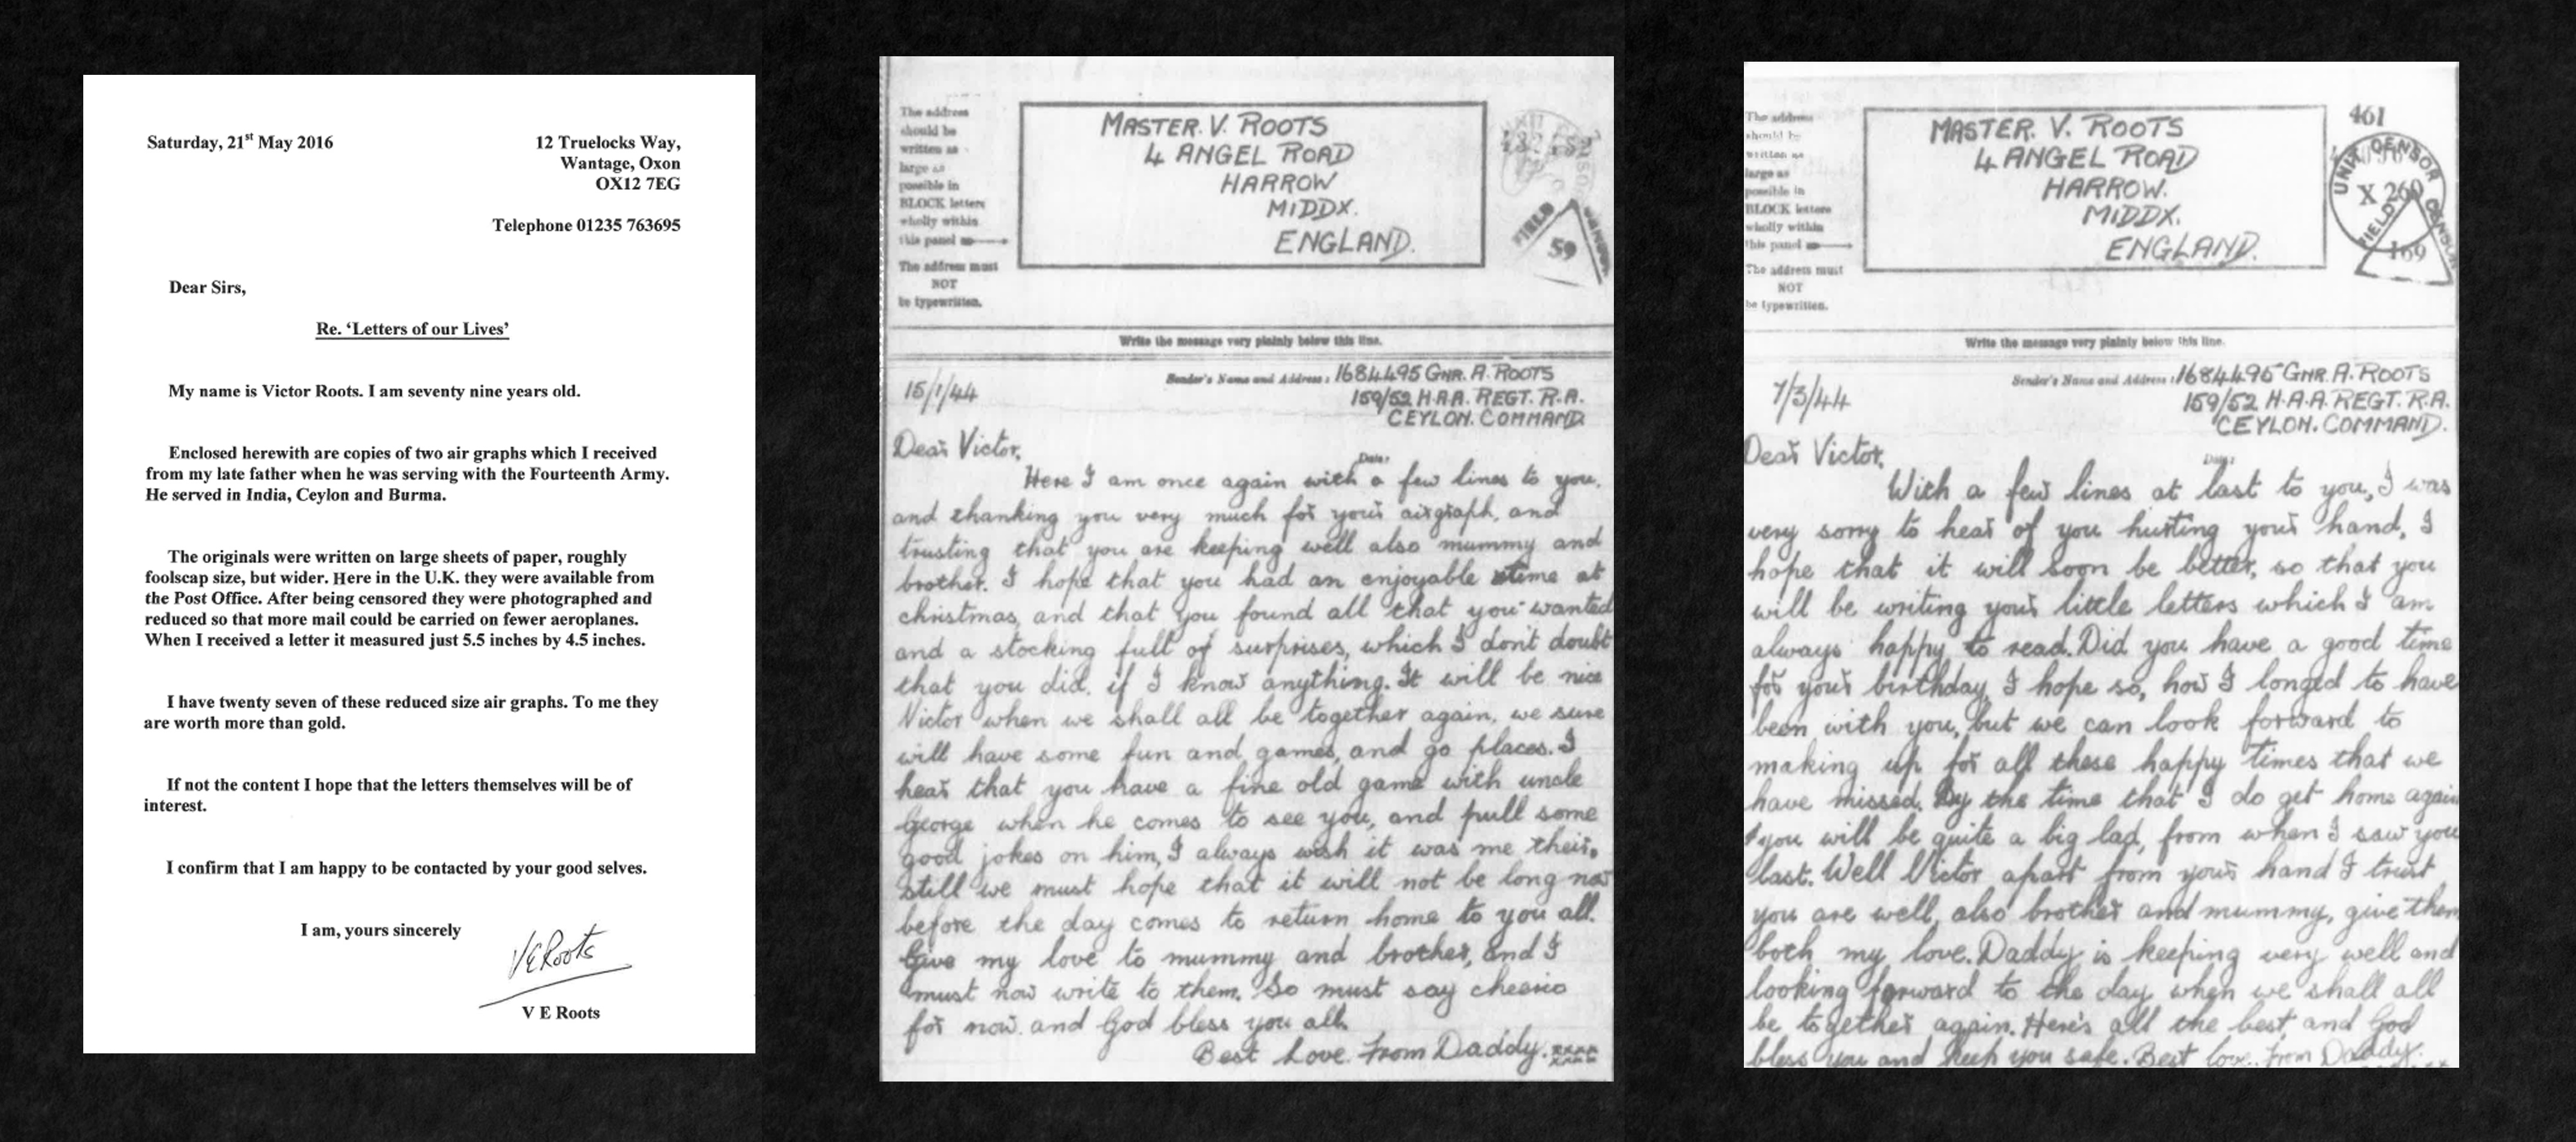 Saturday, 21st May 2016
12 Truelocks Way,
Wantage, Oxon
OX12 7EG
Telephone 01235 763695
Dear Sirs,
Re. ‘Letters of our Lives’
My name is Victor Roots. I am seventy nine years old.
Enclosed herewith are copies of two air graphs which I received
from my late father when he was serving with the Fourteenth Army.
He served in India, Ceylon and Burma.
The originals were written on large sheets of paper, roughly
foolscap size, but wider. Here in the U.K. they were available from
the Post Office. After being censored they were photographed and
reduced so that more mail could be carried on fewer aeroplanes.
When I received a letter it measured just 5.5 inches by 4.5 inches.
I have twenty seven of these reduced size air graphs. To me they
are worth more than gold.
If not the content I hope that the letters themselves will be of
interest.
I confirm that I am happy to be contacted by your good selves.
I am, yours sincerely
V E Roots
V E Roots
The address
should be
written as
large as
possible in
BLOCK letters
wholly within
this panel
The address must
NOT
be typewritten.
MASTER. V. ROOTS
4 ANGEL ROAD
HARROW
MIDDX.
ENGLAND.
FIELD
59
Write the message very plainly below this line.
15/1/44
Sender's Name and Address: 1684495 GNR. A. ROOTS
159/52 H.A.A. REGT. R.A.
CEYLON. COMMAND.
Dear Victor,
Date:
Here I am once again with a few lines to you,
and thanking you very much for your airgraph, and
trusting that you are keeping well also mummy and
brother. I hope that you had an enjoyable time at
christmas, and that you found all that you wanted
and a stocking full of surprises, which I don't doubt
that you did, if I know anything. It will be nice
Victor when we shall all be together again, we sure
will have some fun and games, and go places. I
hear that you have a fine old game with uncle
George when he comes to see you, and pull some
good jokes on him, I always wish it was me their,
still we must hope that it will not be long now
before the day comes to return home to you all.
Give my love to mummy and brother, and I
must now write to them. So must say cheerio
for now. and God bless you all.
Best Love. From Daddy. xxxx
xxxx
The address
should be
written as
large as
possible in
BLOCK letters
wholly within
this panel
The address must
NOT
be typewritten.
MASTER. V. ROOTS
4 ANGEL ROAD
HARROW.
MIDDX.
ENGLAND.
461
UNIT CENSOR
X 260
FIELD CENSOR
169
Write the message very plainly below this line.
7/3/44
Sender's Name and Address: 1684495 GNR. A. ROOTS
159/52 H.A.A. REGT. R.A.
CEYLON. COMMAND.
Dear Victor,
Date:
With a few lines at last to you, I was
very sorry to hear of you hurting your hand, I
hope that it will soon be better, so that you
will be writing your little letters which I am
always happy to read. Did you have a good time
for your birthday, I hope so, how I longed to have
been with you, but we can look forward to
making up for all these happy times that we
have missed. By the time that I do get home again
you will be quite a big lad, from when I saw you
last. Well Victor apart from your hand I trust
you are well, also brother and mummy, give them
both my love. Daddy is keeping very well and
looking forward to the day when we shall all
be together again. Here's all the best, and God
bless you and keep you safe. Best love. From Daddy.